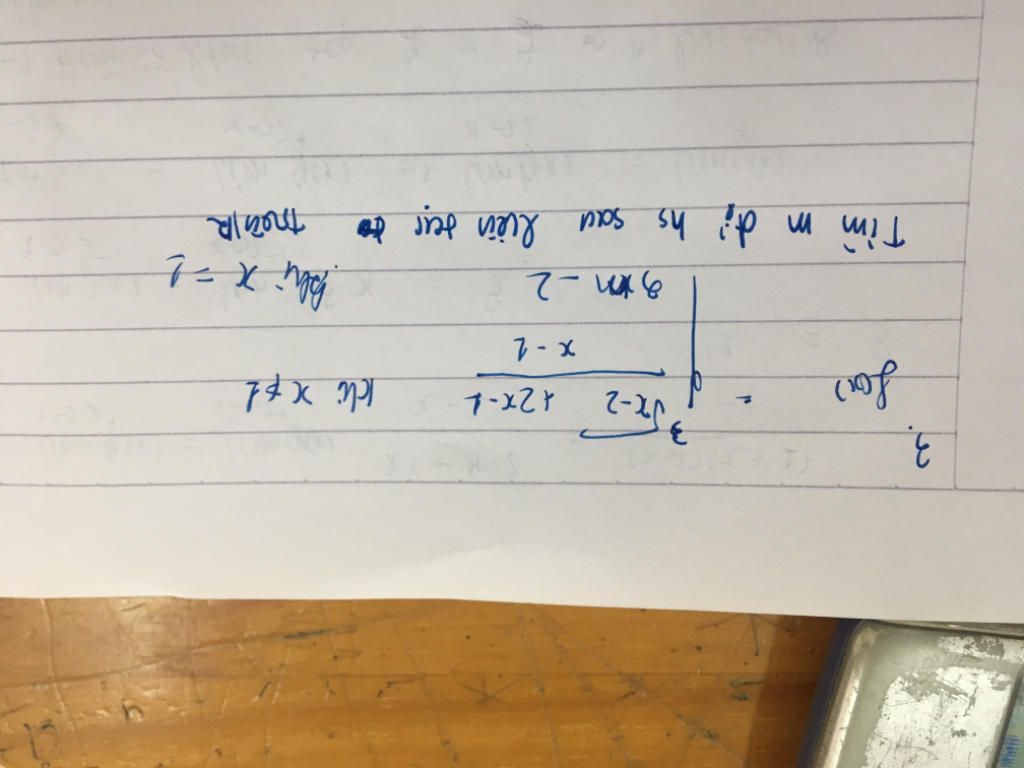 3.
f(x) = { (∛(x-2) + 2x-1) / (x-1) khi x ≠ 1
3m - 2 khi x = 1
Tìm m để hs sau liên tục trên R